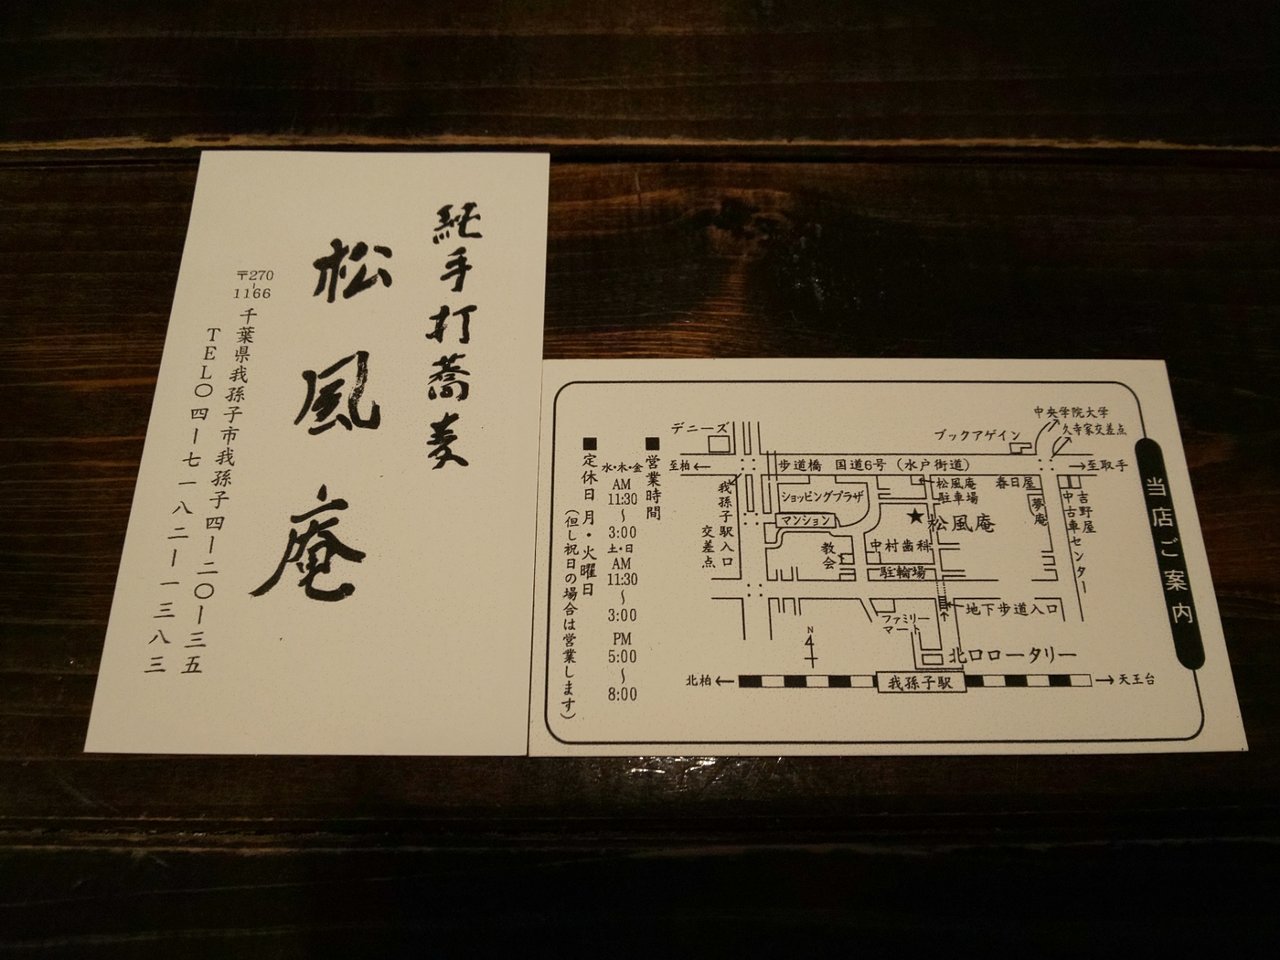 純手打蕎麦
松風庵
〒270-1166
千葉県我孫子市我孫子四ー二〇ー三五
TEL〇四ー七一八二ー一三八三
当店ご案内
中央学院大学
久寺家交差点
デニーズ
ブックアゲイン
至柏←
歩道橋 国道6号(水戸街道)
→至取手
我孫子駅入口
交差点
ショッピングプラザ
マンション
松風庵
駐車場
春日屋
夢庵
吉野屋
中古車センター
★松風庵
教会
中村歯科
駐輪場
地下歩道入口
ファミリー
マート
N
北口ロータリー
北柏←
我孫子駅
→天王台
■営業時間
水・木・金
AM
11:30
〜
3:00
土・日
AM
11:30
〜
3:00
PM
5:00
〜
8:00
■定休日 月・火曜日
(但し祝日の場合は営業します)